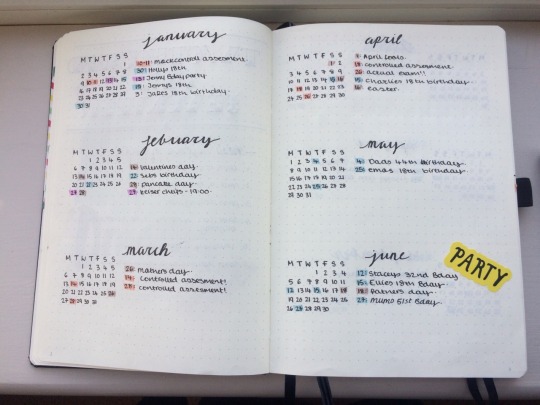 january
M T W T F S S
1
2 3 4 5 6 7 8
9 10 11 12 13 14 15
16 17 18 19 20 21 22
23 24 25 26 27 28 29
30 31
10-11: mock control assesment
30: Hollys 18th
13: Jenny Bday party
19: Jennys 18th
3: Jakes 18th birthday
february
M T W T F S S
1 2 3 4 5
6 7 8 9 10 11 12
13 14 15 16 17 18 19
20 21 22 23 24 25 26
27 28
14: valentines day
22: Sebs birthday
28: pancake day
27: keiser chiefs - 19:00
march
M T W T F S S
1 2 3 4 5
6 7 8 9 10 11 12
13 14 15 16 17 18 19
20 21 22 23 24 25 26
27 28 29 30 31
26: mothers day
14: controlled assesment!
28: controlled assesment!
april
M T W T F S S
1 2
3 4 5 6 7 8 9
10 11 12 13 14 15 16
17 18 19 20 21 22 23
24 25 26 27 28 29 30
April fools
controlled assesment
actual exam!!
15: Charlies 18th birthday
16: easter
may
M T W T F S S
1 2 3 4 5 6 7
8 9 10 11 12 13 14
15 16 17 18 19 20 21
22 23 24 25 26 27 28
29 30 31
4: Dads 44th birthday
25: emas 18th birthday
june
M T W T F S S
1 2 3 4
5 6 7 8 9 10 11
12 13 14 15 16 17 18
19 20 21 22 23 24 25
26 27 28 29 30
12: Staceys 32nd Bday
15: Ellies 18th Bday
18: Fathers day
Mums 51st Bday
PARTY